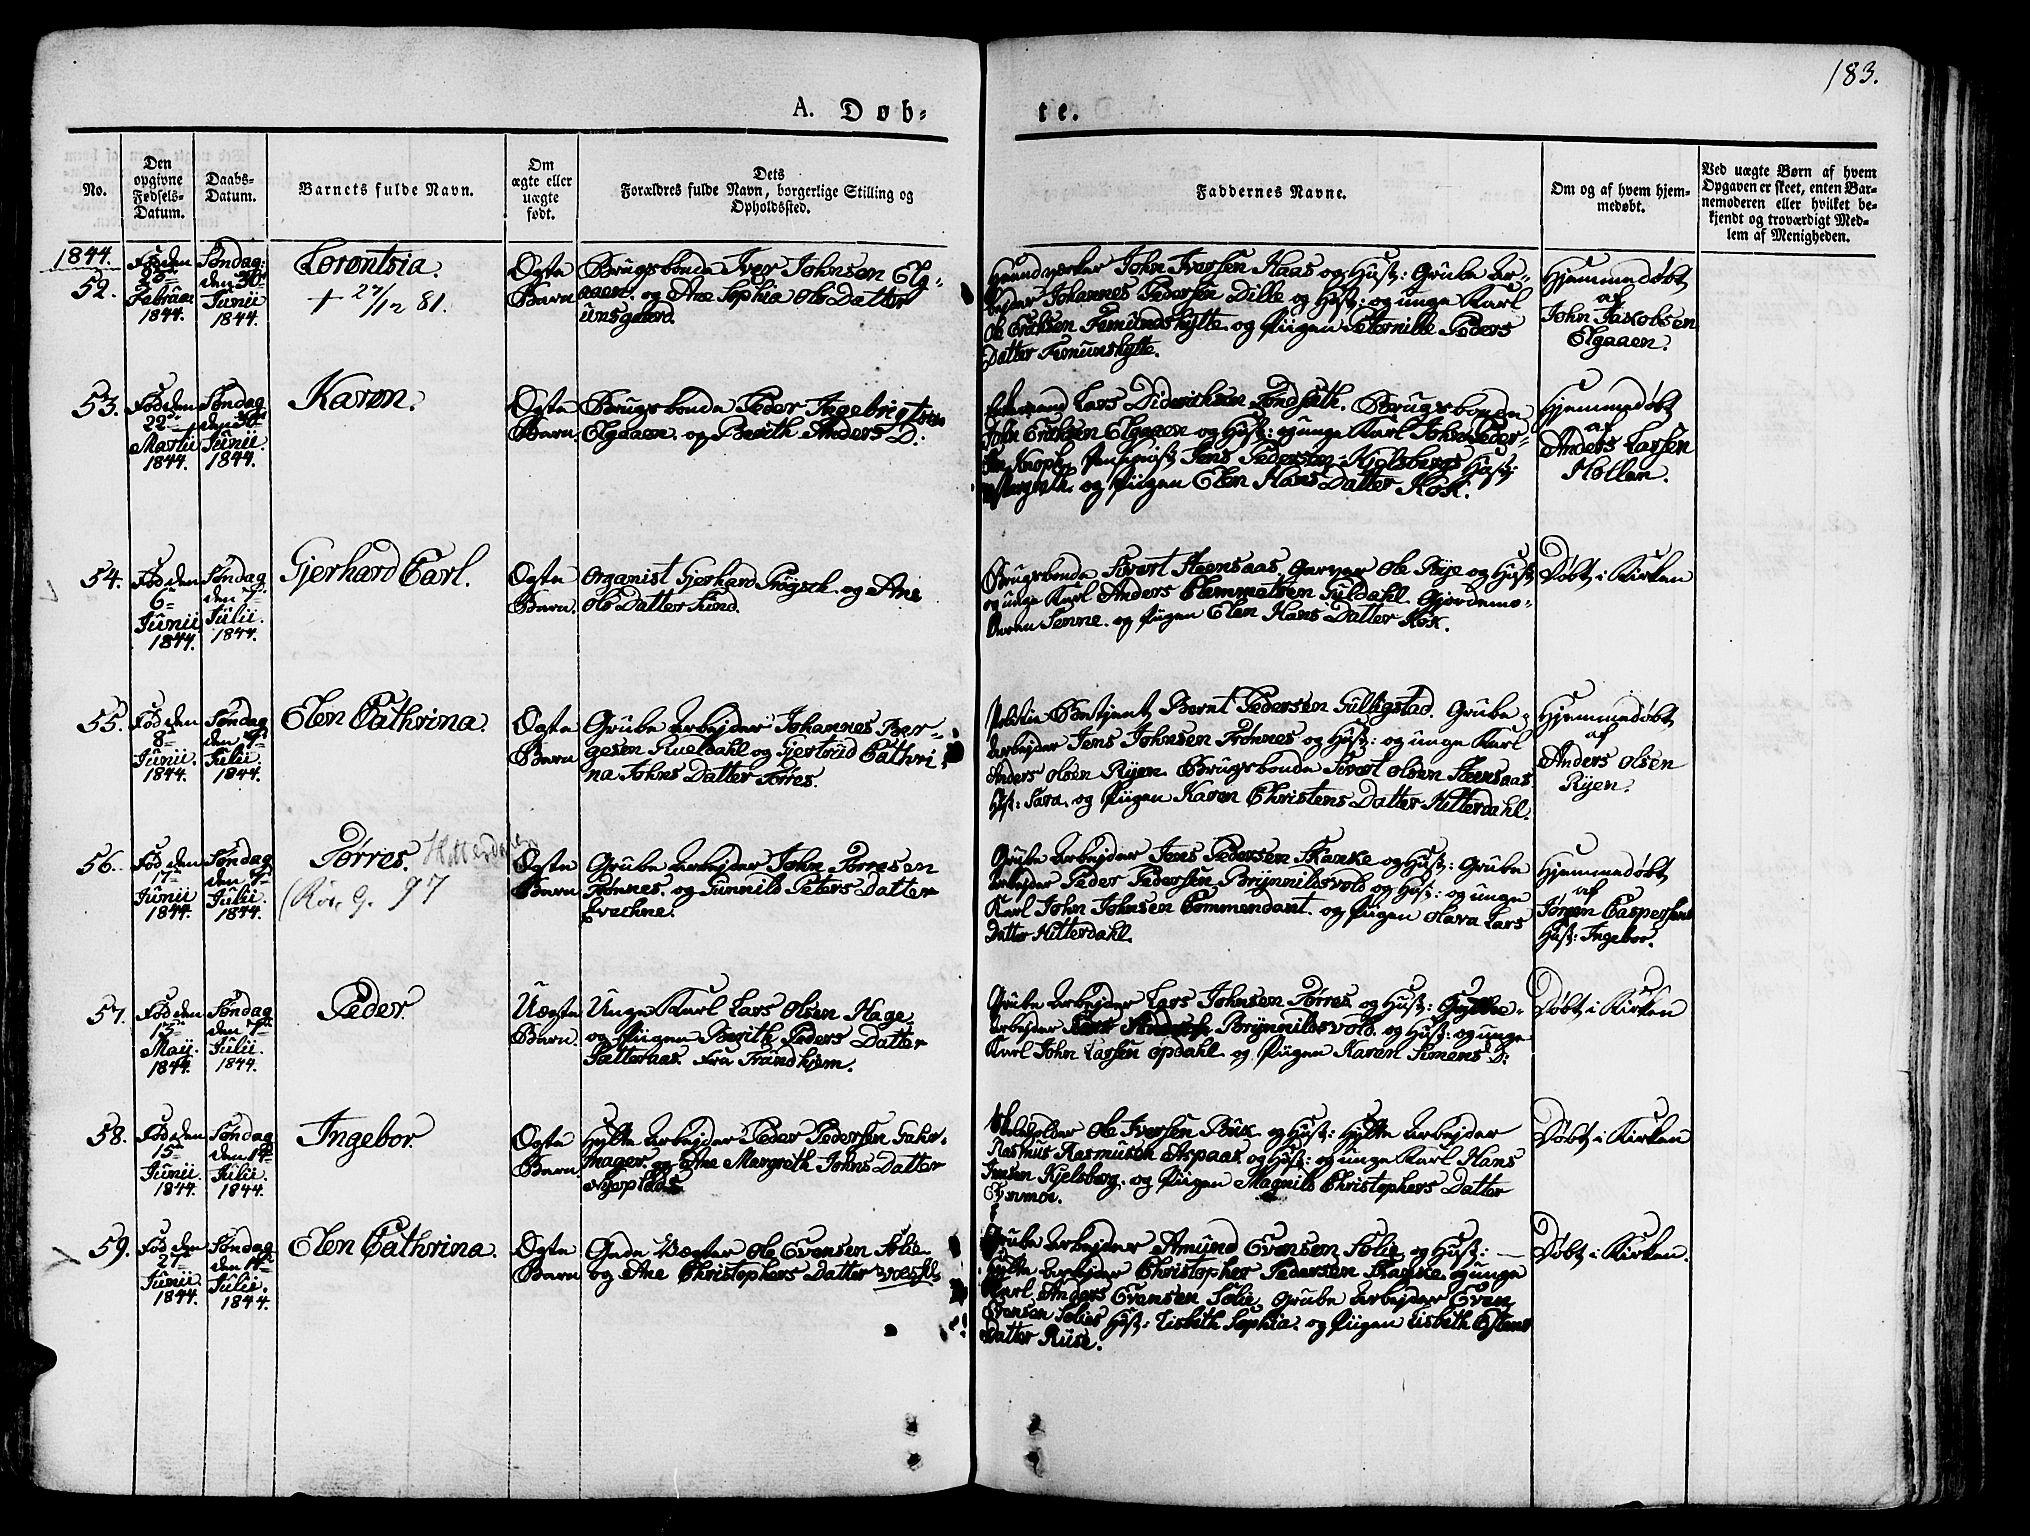 183.
A. Døb-
te.
No.
Den
opgivne
Fødsels-
Datum.
Daabs-
Datum.
Barnets fulde Navn.
Om
ægte eller
uægte
født.
Dets
Forældres fulde Navn, borgerlige Stilling og
Opholdssted.
Faddernes Navne.
Om og af hvem hjem-
medøbt.
Ved uægte Børn af hvem
Opgaven er skeet, enten Bar-
nemoderen eller hvilket be-
kjendt og troværdigt Med-
lem af Menigheden.
1844.
52.
Fød den
Februar
1844.
Søndag
den 30te
Junii
1844.
Lorontsia.
+ 27/12 81.
Ægte
Barn
Brugsbonde Iver Johnsen Elg-
aaen. og Ane Sophia Ols Datter
unsgaard.
Haandværker John Iversen Haas og Hust: Grube Ar-
bejder Johannes Pedersen Dille og Hust: og unge Karl
Ole Eriksen Femundshytte. og Pigen Peternille Peders
Datter Femunshytte.
Hjemmedøbt
af
John Jakobsen
Elgaaen.
53.
Fød den
22de
Martii
1844.
Søndag
den 30te
Junii
1844.
Karen.
Ægte
Barn.
Brugsbonde Peder Ingebrigtsen
Elgaaen. og Berith Anders D:
Enkemand Lars Dideriksen Tondseth. Brugsbonde
John Eriksen Elgaaen og Hust: og unge Karl John Peder-
sen Knoph. Jens Pedersen Kjelsbergs Hust:
og Pigen Elen Hans Datter Kok.
Hjemmedøbt
af
Anders Larsen
Møllen.
54.
Fød den
6te
Junii
1844.
Søndag
den 7de
Julii.
1844.
Gjerhard Carl.
Ægte
Barn.
Organist Gjerhard Prøgsch. og Ane
Ols Datter Lund.
Brugsbonde Sivert Steensaas. Garver Ole Rye og Hust:
og unge Karl Anders Clemmetsen Guldahl. Gjordemo-
deren Senne. og Pigen Elen Hans Datter Kok.
Døbt i Kirken
55.
Fød den
8de
Junii
1844.
Søndag
den 7de
Julii
1844.
Elen Cathrina.
Ægte
Barn
Grube Arbejder Johannes Ber-
gesen Rueldahl og Gjertrud Cathri-
na Johns Datter Tørres.
Bestjent Bernt Pedersen Gulligstad. Grube
Arbejder Jens Johnsen Trønnes og Hust: og unge Karl
Anders Olsen Ryen. Brugsbonde Sivert Olsen Steensaas
Hust: Sara. og Pigen Karen Christens Datter Hitterdahl.
Hjemmedøbt
af
Anders Olsen
Ryen.
56.
Fød den
17de
Junii
1844.
Søndag
den 7de
Julii.
1844.
Tørres. Hitterdalen
(Rør. G. 97
Ægte
Barn
Grube Arbejder John Torresen
Trønnes. og Gunnild Peters Datter
Evechne.
Grube Arbejder Jens Pedersen Skanke og Hust: Grube
Arbejder Peder Pedersen Brynnildsvold og Hust: og unge
Karl John Johnsen Commendant. og Pigen Olava Lars
Datter Hitterdahl.
Hjemmedøbt
af
Jøren Caspersens
Hust: Ingebor.
57.
Fød den
Maij.
1844.
Søndag
den 7de
Julii.
1844.
Peder.
Uægte
Barn.
Unge Karl Lars Olsen Hage,
og Pigen Berith Peders Datter
Sætteraas. Fra Trondhjem.
Grube Arbejder Lars Johnsen Tørres. og Hust: Hytte-
arbejder Brynnildsvold. og Hust: og unge
Karl John Larsen Opdahl. og Pigen Karen Simens D:
Døbt i Kirken
58.
Fød den
15de
Junii
1844.
Søndag
den 14de
Julii.
1844.
Ingebor.
Ægte
Barn.
Hytte Arbejder Peder Pedersen
mager. og Ane Margreth Johns Datter
Skoleholder Ole Iversen Buk. og Hust: Hytte Arbejder
Rasmus Rasmusen Aspaas. og Hust: og unge Karl Hans
Jensen Kjelsberg. og Pigen Magnild Christophers Datter
Døbt i Kirken
59.
Fød den
27de
Junii
1844.
Søndag
den 14de
Julii.
1844.
Elen Cathrina.
Ægte
Barn.
Vægter Ole Evensen Solie
og Ane Christophers Datter
Grube Arbejder Amund Evensen Solie, og Hust:
Hytte Arbejder Christopher Pedersen Skanke. og unge
Karl Anders Evensen Solie, Grube Arbejder Even
Evensen Solies Hust: Lisbeth Sophia. og Pigen Lisbeth Estens
Datter Ruse.
Døbt i Kirken.